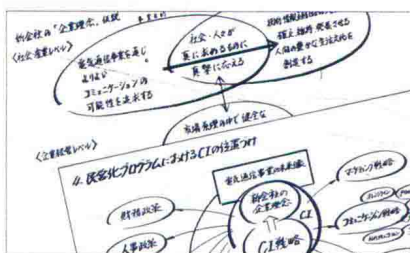 新会社の「企業理念」仮説
〈社会・産業レベル〉
電気通信事業を通じ
よりよい
コミュニケーションの
可能性を追求する
社会・人々が
真に求めるものに
真摯に応える
確立、維持、発展させる
人間の豊かな生活文化を
創造する
市場原理の中で健全な
〈企業経営レベル〉
4. 民営化プログラムにおけるCIの位置づけ
電気通信事業の未来像
新会社の
企業理念
CI
CI戦略
財務政策
人事政策
マーケティング戦略
コミュニケーション戦略